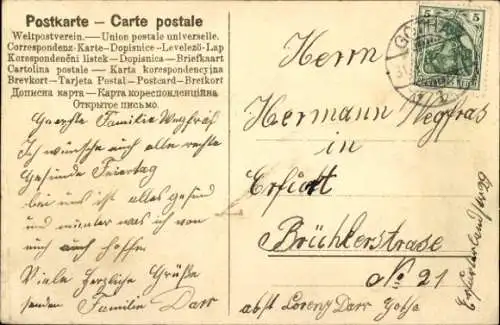 Postkarte – Carte postale
Weltpostverein. — Union postale universelle.
Correspondenz-Karte – Dopisnice – Levelező-Lap
Korespondenční lístek – Dopisnica – Briefkaart
Cartolina postale — Karta korespondencyjna
Brevkort – Tarjeta Postal – Postcard – Bretkort
Дописна карта — Карта кореспонденційна
Открытое письмо.
Geerhte Familie Wegfraß
Ich wünsche euch alle rechte
Gesunde Feiertag
bei uns ist alles gesund
und munter was ich von
euch auch hoffe
Viele herzliche Grüße
senden Familie Darr
5 5
GOTHA
Herrn
Hermann Wegfras
in
Erfurt
Brühlerstrase
No 21
abst Lorenz Darr Gotha